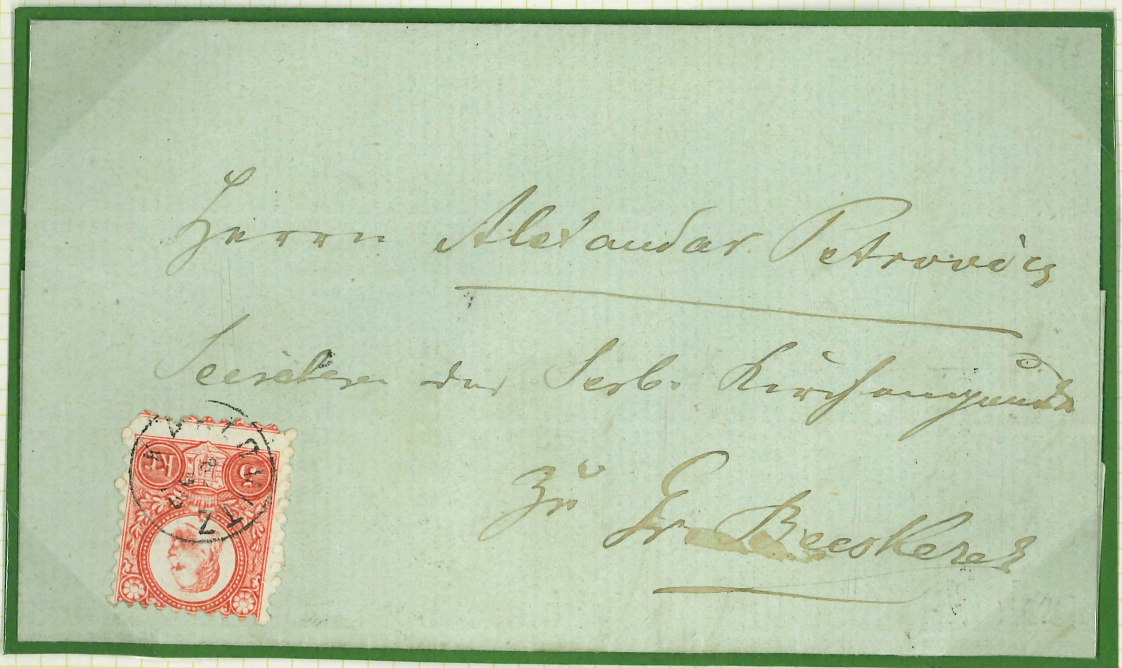 Herrn Alexandar Petrovics
der Serb. Kirchengemeinde
zu Gr. Becskerek
5 Kr